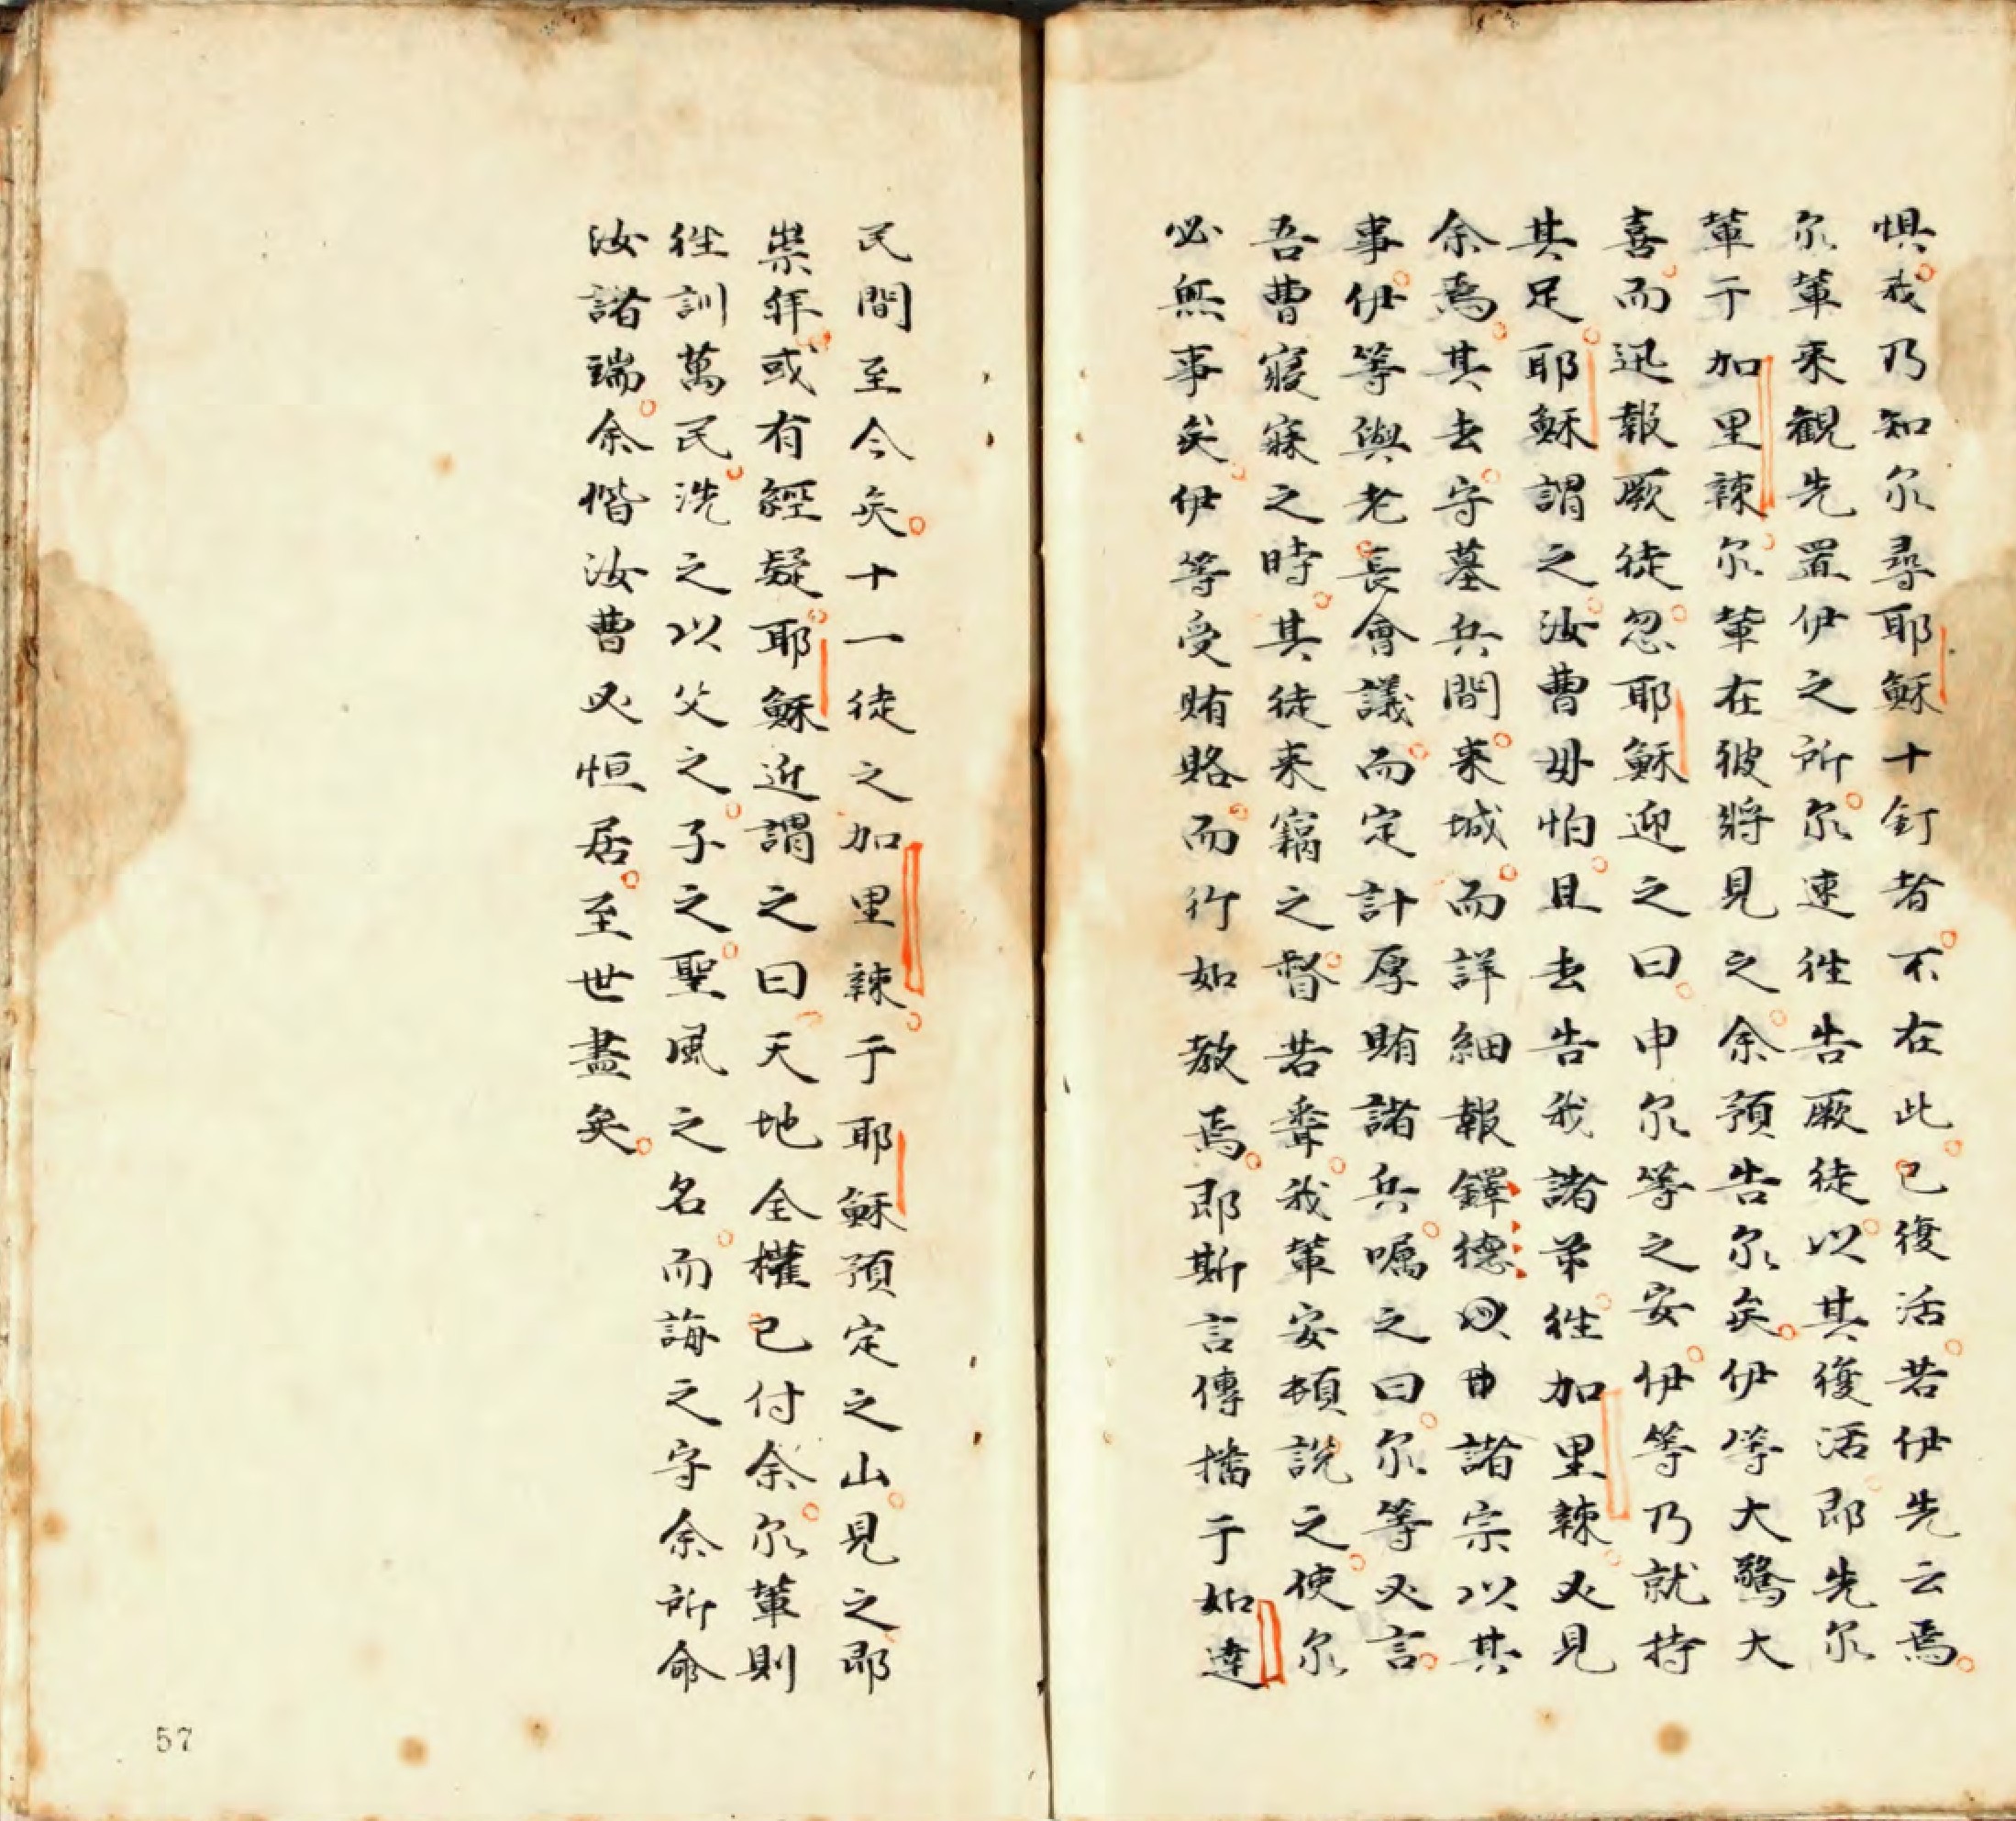 惧我乃知尔尋耶穌十釘者不在此已復活若伊先云焉
尔輩来觀先置伊之所尔速往告厥徒以其復活即先尔
輩于加里辣尔輩在彼將見之余預告尔矣伊等大驚大
喜而迅報厥徒忽耶穌迎之曰申尔等之安伊等乃就持
其足耶穌謂之汝曹毋怕且去告我諸弟往加里辣必見
余焉其去守墓兵間来城而詳細報鐸德諸宗以其
事伊等與老長會議而定計厚賄諸兵囑之曰尔等必言
吾曹寢寐之時其徒来竊之督若聞我輩安頓說之使尔
必無事矣伊等受賄賂而行如教焉即斯言傳播于如達
民間至今矣十一徒之加里辣于耶穌預定之山見之即
崇拜或有經疑耶穌近謂之曰天地全權已付余尔輩則
往訓萬民洗之以父之子之聖風之名而誨之守余所命
汝諸端余偕汝曹必恒居至世盡矣
57